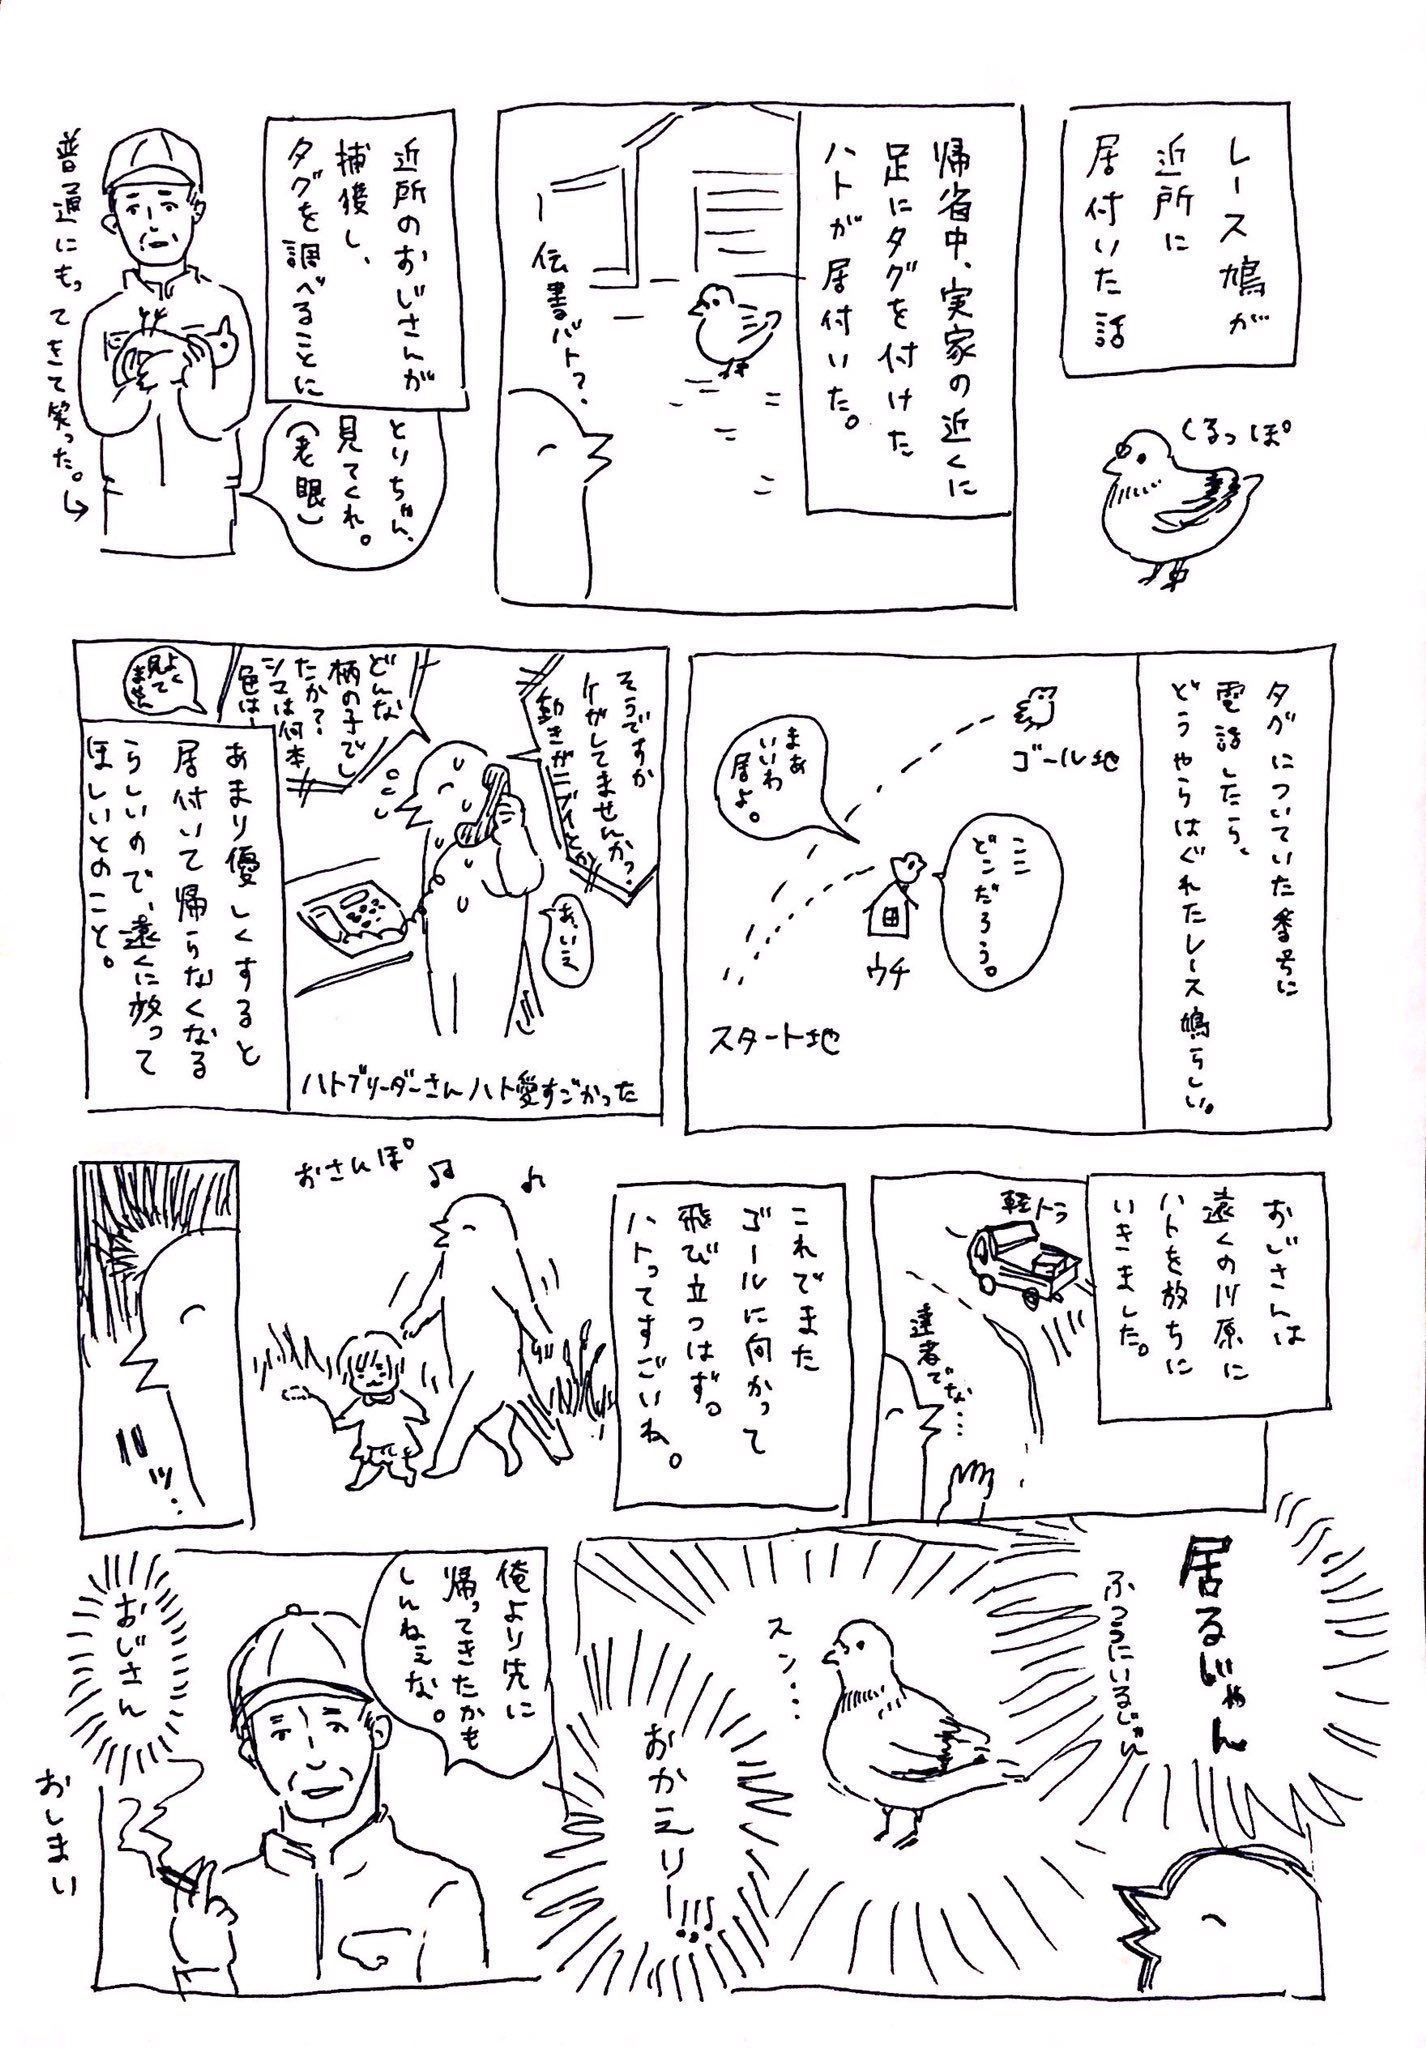 レース鳩が
近所に
居付いた話
くるっぽ。
帰省中、実家の近くに
足にタグを付けた
ハトが居付いた。
伝書バト?
近所のおじさんが
捕獲し、
タグを調べることに
とりちゃん、
見てくれ。
(老眼)
普通にもってきて笑った。→
タグについていた番号に
電話したら、
どうやらはぐれたレース鳩らしい。
ゴール地
まあ
いいわ
居よ。
ここ
どこだろう。
ウチ
スタート地
そうですか
ケガしてませんか?
動きがニブイとか
あ、いえ
どんな
柄の子でし
たか?
シマは何本
色は―
よく
見て
ません
ハトブリーダーさんハト愛すごかった
あまり優しくすると
居付いて帰らなくなる
らしいので、遠くに放って
ほしいとのこと。
おじさんは
遠くの川原に
ハトを放ちに
いきました。
軽トラ
達者でな…
これでまた
ゴールに向かって
飛び立つはず。
ハトってすごいね。
おさんぽ♪
ハッ…
居るじゃん
ふつうにいるじゃん
スン…
おかえりー!!!
俺より先に
帰ってきたかも
しんねぇな。
おじさん
おしまい